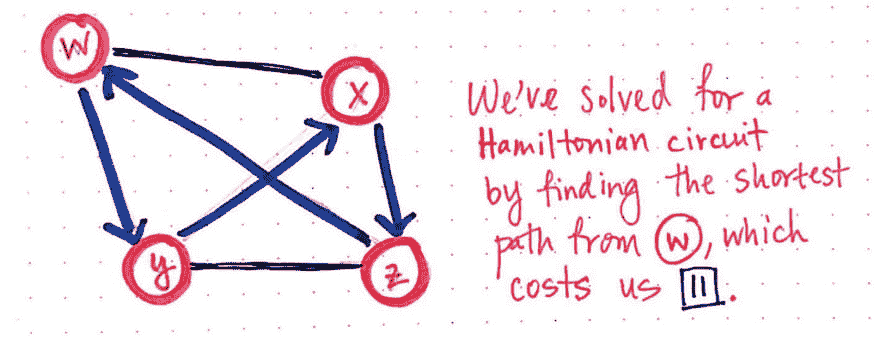 W
X
y
z
We've solved for a
Hamiltonian circuit
by finding the shortest
path from W, which
costs us 11.